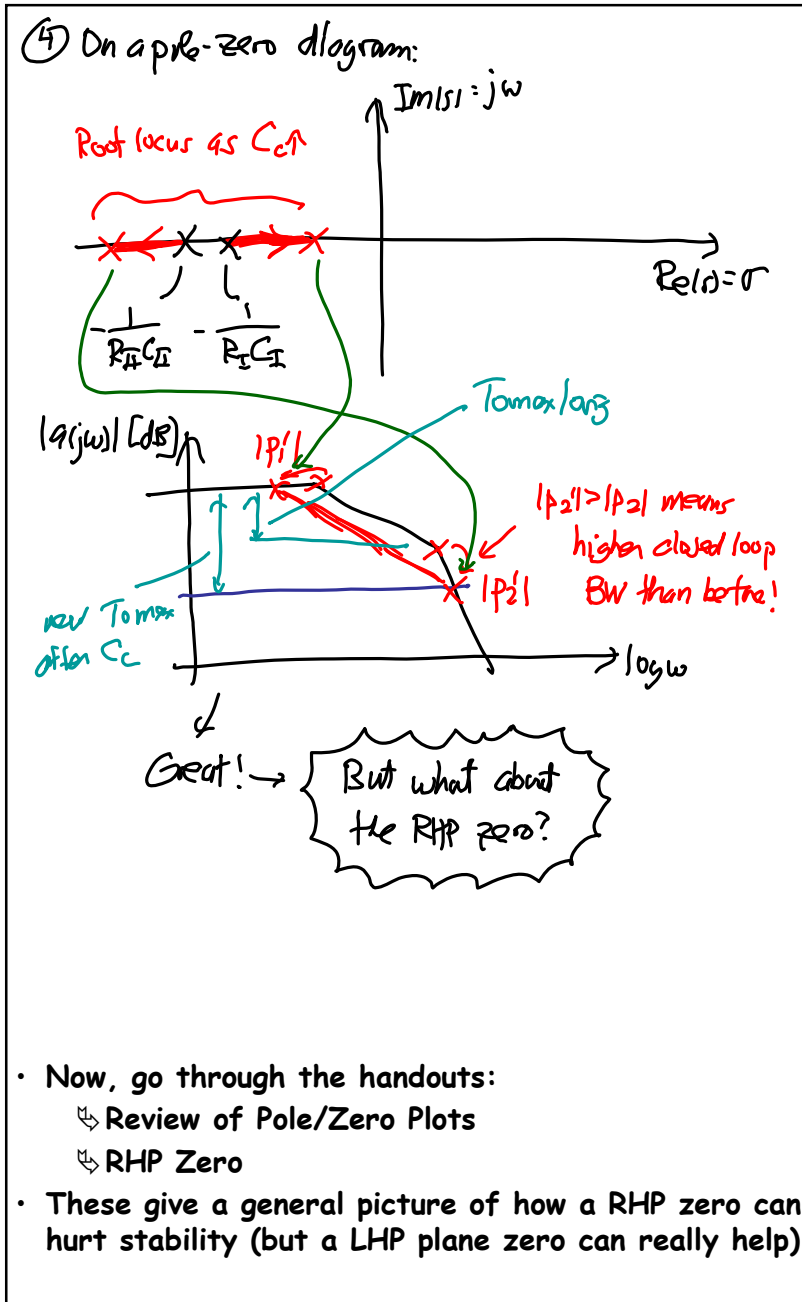 ④ On a pole-zero diagram:
Im(s) = jω
Root locus as Cc↑
Re(s) = σ
-1/(R_II C_II) -1/(R_I C_I)
Tomax/orig
|a(jω)| [dB]
|p₁'|
|p₂'| > |p₂| means
higher closed loop
BW than before!
|p₂'|
new Tomax
after Cc
log ω
Great! →
But what about
the RHP zero?
• Now, go through the handouts:
↳ Review of Pole/Zero Plots
↳ RHP Zero
• These give a general picture of how a RHP zero can
hurt stability (but a LHP plane zero can really help)